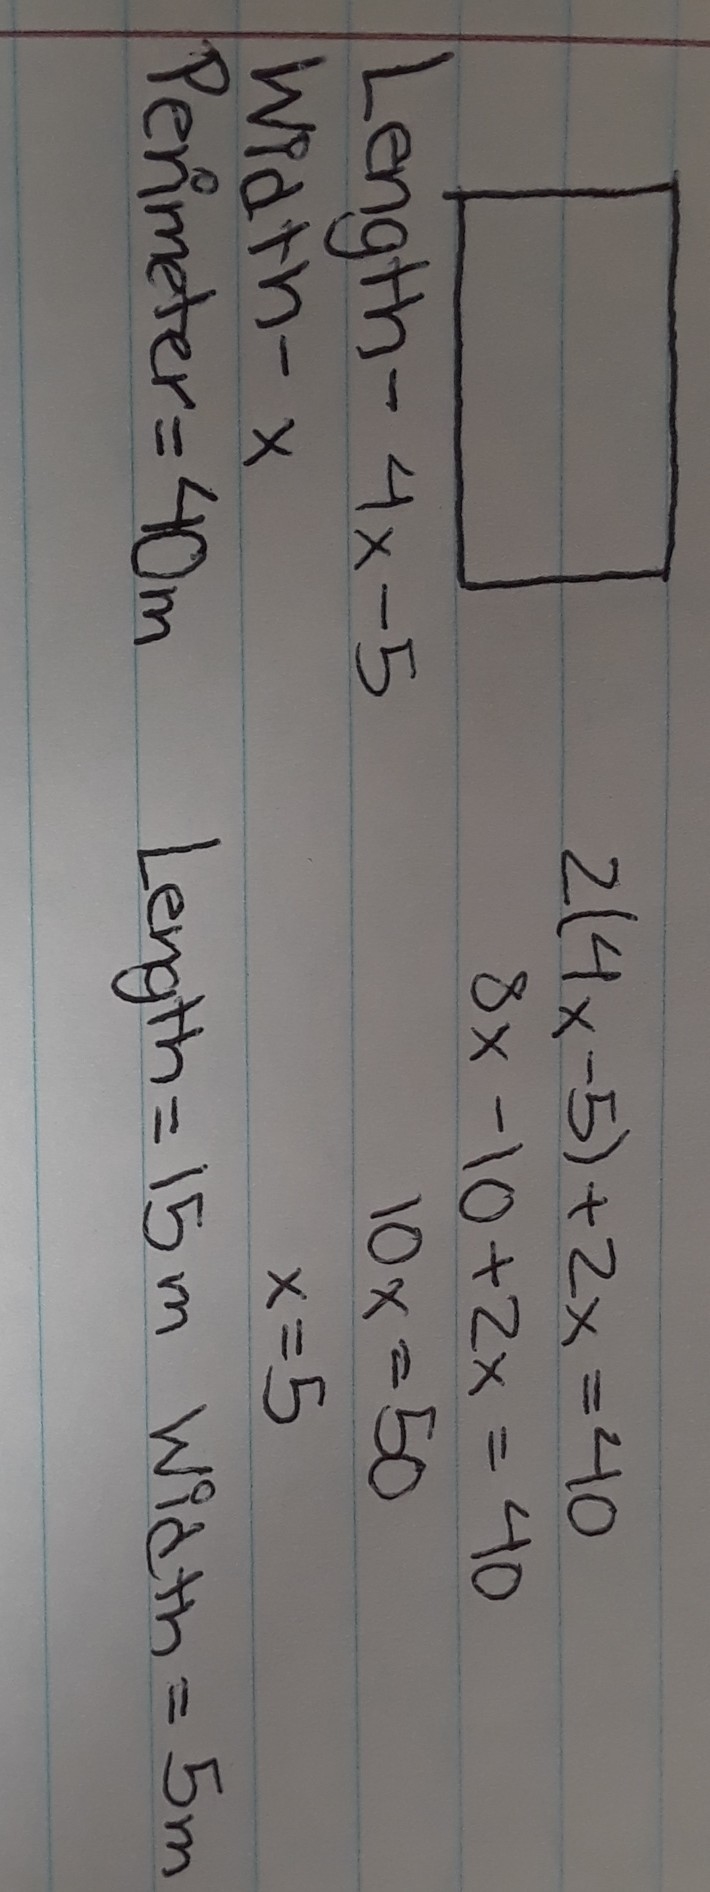 2(4x-5)+2x=40
8x-10+2x=40
Length- 4x-5
10x=50
Width- x
x=5
Perimeter=40m
Length=15m Width=5m